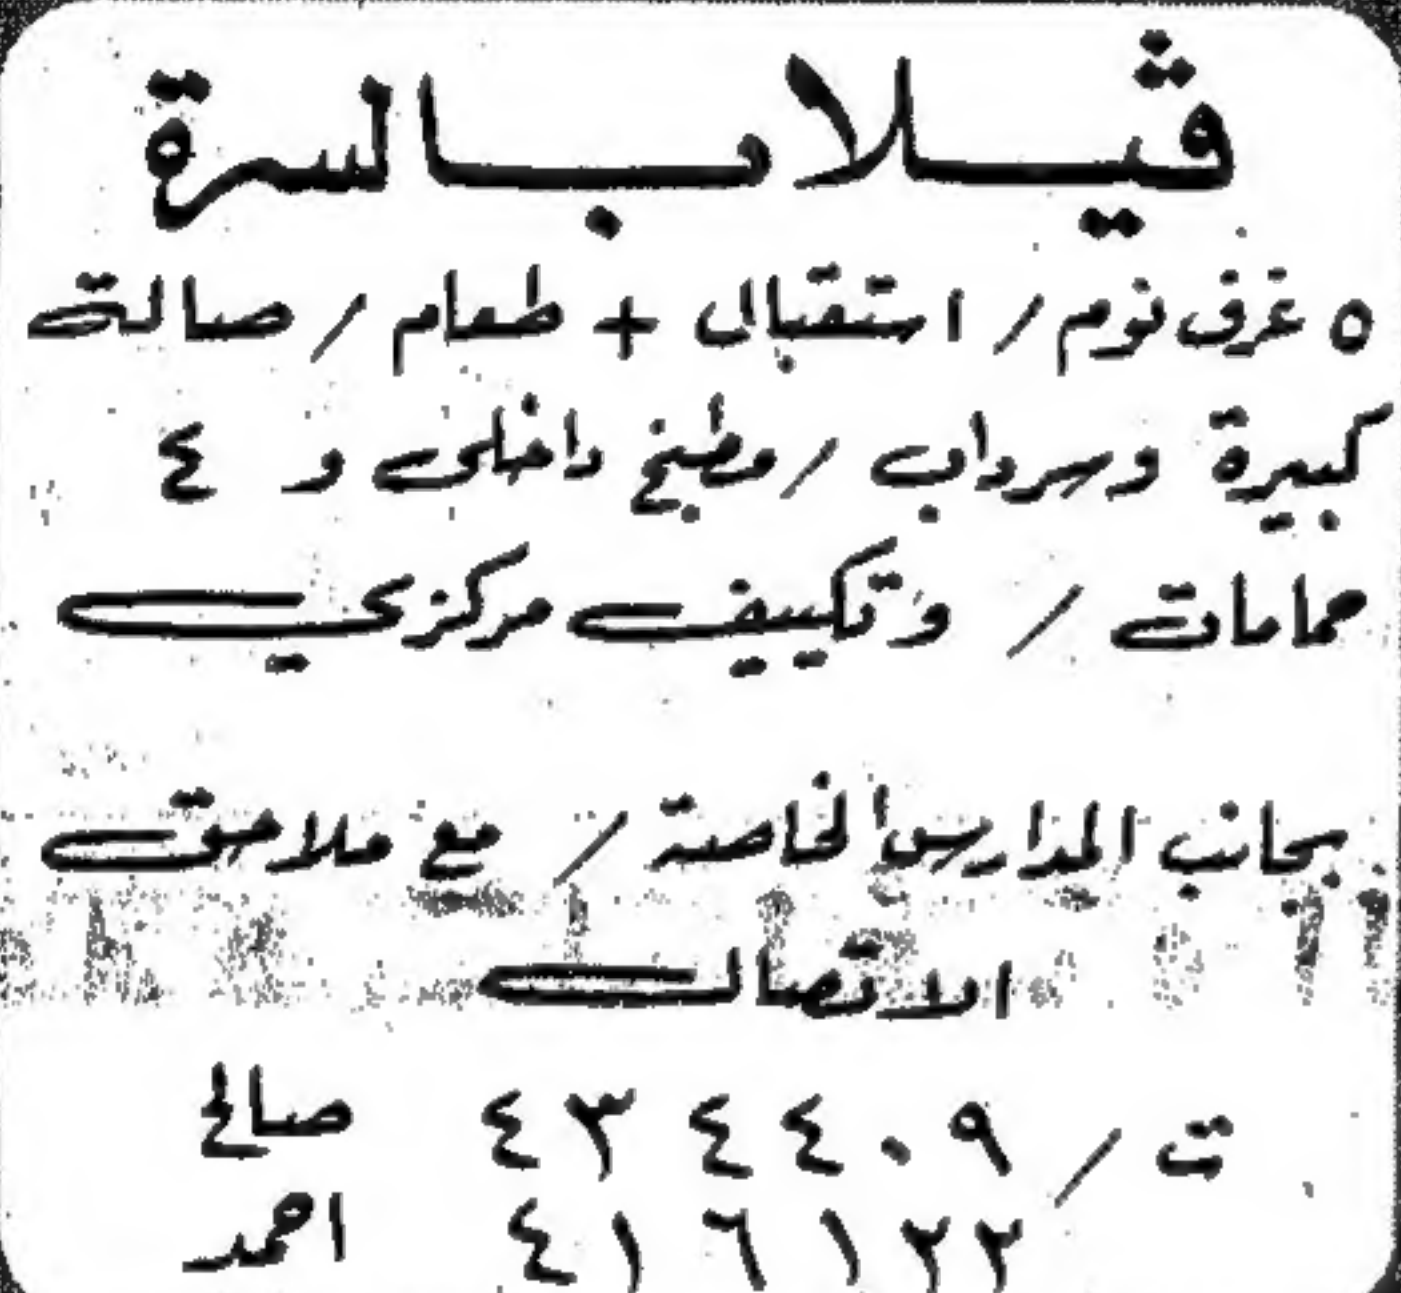 ڤيلا بالسرة
٥ غرف نوم / استقبال + طعام / صالة
كبيرة وسرداب / مطبخ داخلى و ٤
حمامات / وتكييف مركزي
بجانب المدارس الخاصة / مع ملاحق
الاتصال
ت / ٤٣٤٤٠٩ صالح
٤١٦١٢٢ احمد